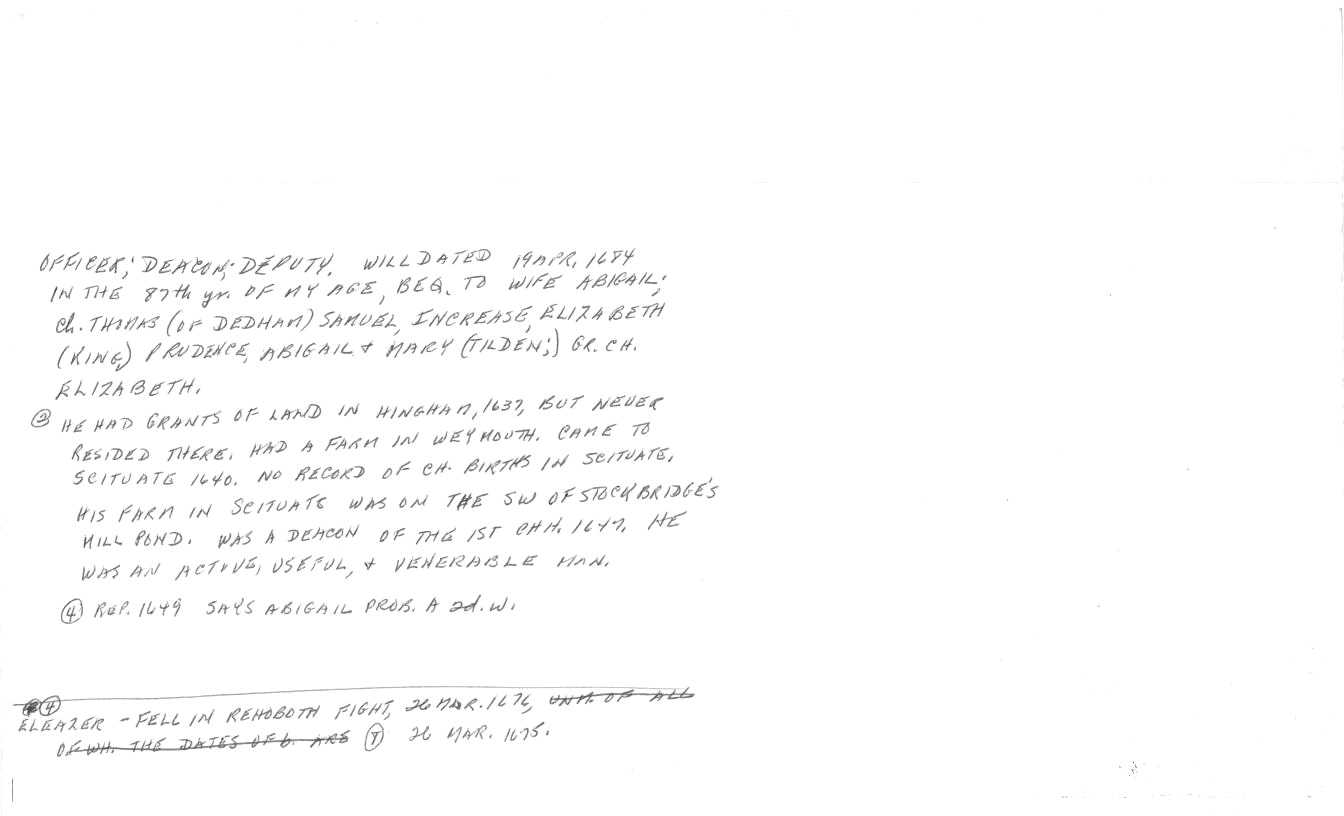 OFFICER; DEACON; DEPUTY. WILL DATED 19 APR, 1684
IN THE 87th yr. OF MY AGE, BEQ. TO WIFE ABIGAIL;
ch. THOMAS (OF DEDHAM) SAMUEL, INCREASE, ELIZABETH
(KING,) PRUDENCE, ABIGAIL & MARY (TILDEN;) GR. CH.
ELIZABETH.
③ HE HAD GRANTS OF LAND IN HINGHAM, 1637, BUT NEVER
RESIDED THERE. HAD A FARM IN WEYMOUTH. CAME TO
SCITUATE 1640. NO RECORD OF CH. BIRTHS IN SCITUATE.
HIS FARM IN SCITUATE WAS ON THE SW OF STOCKBRIDGE'S
MILL POND. WAS A DEACON OF THE 1ST CHH. 1647. HE
WAS AN ACTIVE, USEFUL, & VENERABLE MAN.
④ REP. 1649 SAYS ABIGAIL PROB. A 2d. W.
④
ELEAZER - FELL IN REHOBOTH FIGHT, 26 MAR. 1676, UNM. OF ALL
OF WH. THE DATES OF b. ARE ⑦ 26 MAR. 1675.